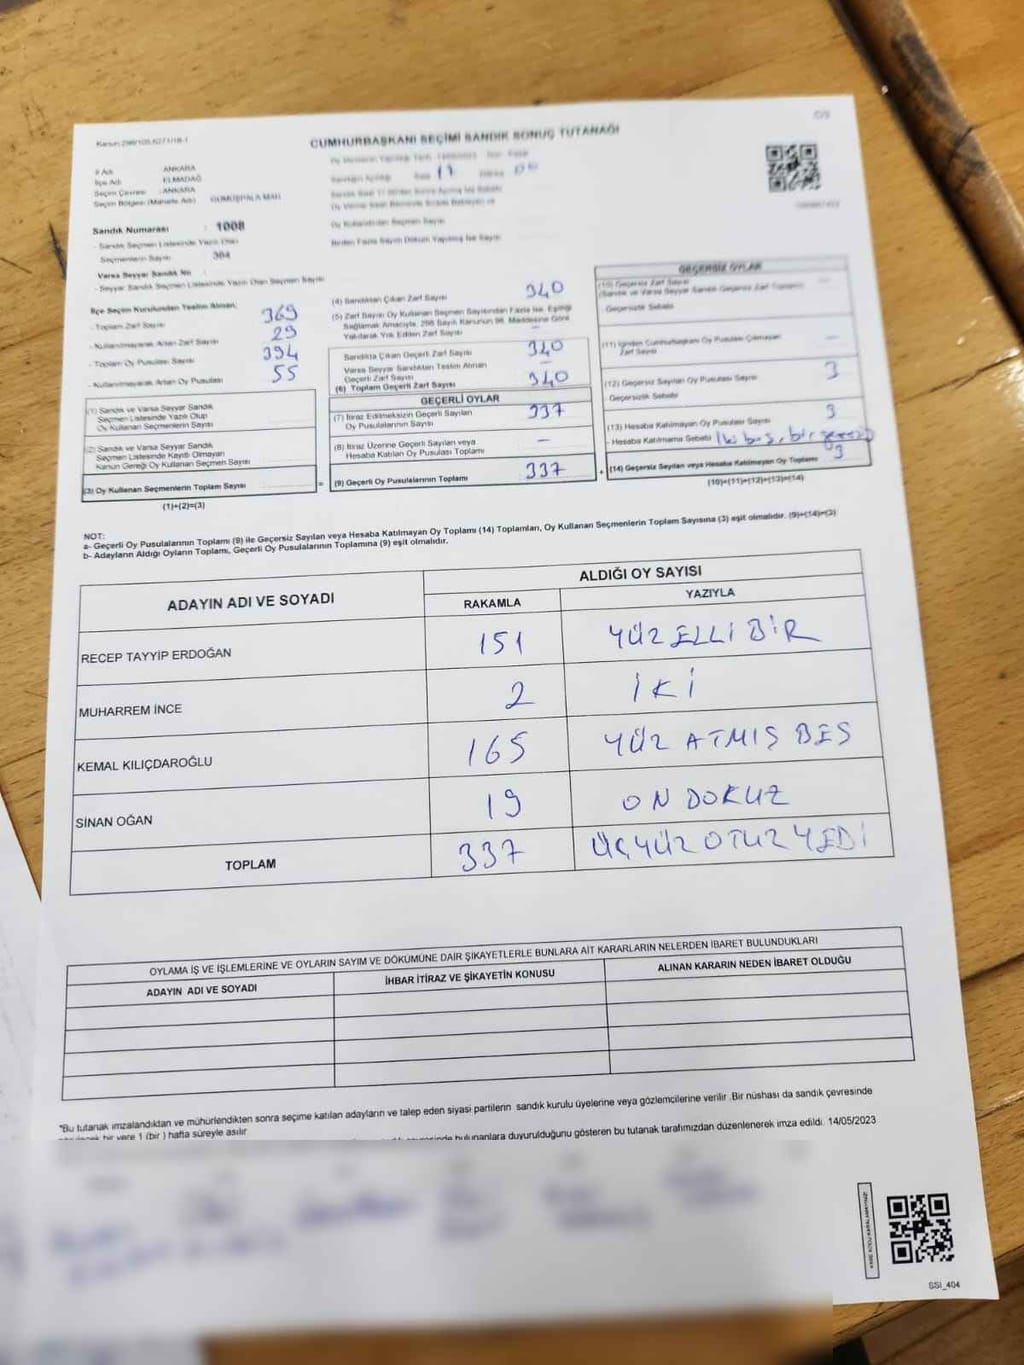 CUMHURBAŞKANI SEÇİMİ SANDIK SONUÇ TUTANAĞI
İl Adı ANKARA
İlçe Adı ELMADAĞ
Seçim Çevresi : ANKARA
Seçim Bölgesi (Mahalle Adı) GÜMÜŞPALA MAH
Sandık Numarası : 1008
- Sandık Seçmen Listesinde Yazılı Olan
Seçmenlerin Sayısı
Varsa Seyyar Sandık No :
- Seyyar Sandık Seçmen Listesinde Yazılı Olan Seçmen Sayısı
İlçe Seçim Kurulundan Teslim Alınan;
- Toplam Zarf Sayısı 369
- Kullanılmayarak Artan Zarf Sayısı 29
- Toplam Oy Pusulası Sayısı 394
- Kullanılmayarak Artan Oy Pusulası 55
(1) Sandık ve Varsa Seyyar Sandık
Seçmen Listesinde Yazılı Olup
Oy Kullanan Seçmenlerin Sayısı
(2) Sandık ve Varsa Seyyar Sandık
Seçmen Listesinde Kayıtlı Olmayan
Kanun Gereği Oy Kullanan Seçmen Sayısı
(3) Oy Kullanan Seçmenlerin Toplam Sayısı
(1)+(2)=(3)
Oy Kullandırılan Seçmen Sayısı
Birden Fazla Sayım Döküm Yapılmış İse Sayısı
(4) Sandıktan Çıkan Zarf Sayısı 340
(5) Zarf Sayısı Oy Kullanan Seçmen Sayısından Fazla İse, Eşitliği
Sağlamak Amacıyla, 298 Sayılı Kanunun 98. Maddesine Göre
Yakılarak Yok Edilen Zarf Sayısı –
Sandıkta Çıkan Geçerli Zarf Sayısı 340
Varsa Seyyar Sandıktan Teslim Alınan
Geçerli Zarf Sayısı –
(6) Toplam Geçerli Zarf Sayısı 340
GEÇERLİ OYLAR
(7) İtiraz Edilmeksizin Geçerli Sayılan
Oy Pusulalarının Sayısı 337
(8) İtiraz Üzerine Geçerli Sayılan veya
Hesaba Katılan Oy Pusulası Toplamı –
(9) Geçerli Oy Pusulalarının Toplamı 337
GEÇERSİZ OYLAR
(10) Geçersiz Zarf Sayısı –
(Sandık ve Varsa Seyyar Sandık Geçersiz Zarf Toplamı)
Geçersizlik Sebebi
(11) İçinden Cumhurbaşkanı Oy Pusulası Çıkmayan
Zarf Sayısı –
(12) Geçersiz Sayılan Oy Pusulası Sayısı 3
- Geçersizlik Sebebi
(13) Hesaba Katılmayan Oy Pusulası Sayısı 3
- Hesaba Katılmama Sebebi İki boş, bir geçersiz
(14) Geçersiz Sayılan veya Hesaba Katılmayan Oy Toplamı 3
(10)+(11)+(12)+(13)=(14)
NOT:
a- Geçerli Oy Pusulalarının Toplamı (9) ile Geçersiz Sayılan veya Hesaba Katılmayan Oy Toplamı (14) Toplamları, Oy Kullanan Seçmenlerin Toplam Sayısına (3) eşit olmalıdır. (9)+(14)=(3)
b- Adayların Aldığı Oyların Toplamı, Geçerli Oy Pusulalarının Toplamına (9) eşit olmalıdır.
ADAYIN ADI VE SOYADI ALDIĞI OY SAYISI
RAKAMLA YAZIYLA
RECEP TAYYİP ERDOĞAN 151 YÜZ ELLİ BİR
MUHARREM İNCE 2 İKİ
KEMAL KILIÇDAROĞLU 165 YÜZ ATMIŞ BEŞ
SİNAN OĞAN 19 ON DOKUZ
TOPLAM 337 ÜÇ YÜZ OTUZ YEDİ
OYLAMA İŞ VE İŞLEMLERİNE VE OYLARIN SAYIM VE DÖKÜMÜNE DAİR ŞİKAYETLERLE BUNLARA AİT KARARLARIN NELERDEN İBARET BULUNDUKLARI
ADAYIN ADI VE SOYADI İHBAR İTİRAZ VE ŞİKAYETİN KONUSU ALINAN KARARIN NEDEN İBARET OLDUĞU
"Bu tutanak imzalandıktan ve mühürlendikten sonra seçime katılan adayların ve talep eden siyasi partilerin sandık kurulu üyelerine veya gözlemcilerine verilir .Bir nüshası da sandık çevresinde
bir yere 1 (bir ) hafta süreyle asılır
bulunanlara duyurulduğunu gösteren bu tutanak tarafımızdan düzenlenerek imza edildi. 14/05/2023
SSİ_404